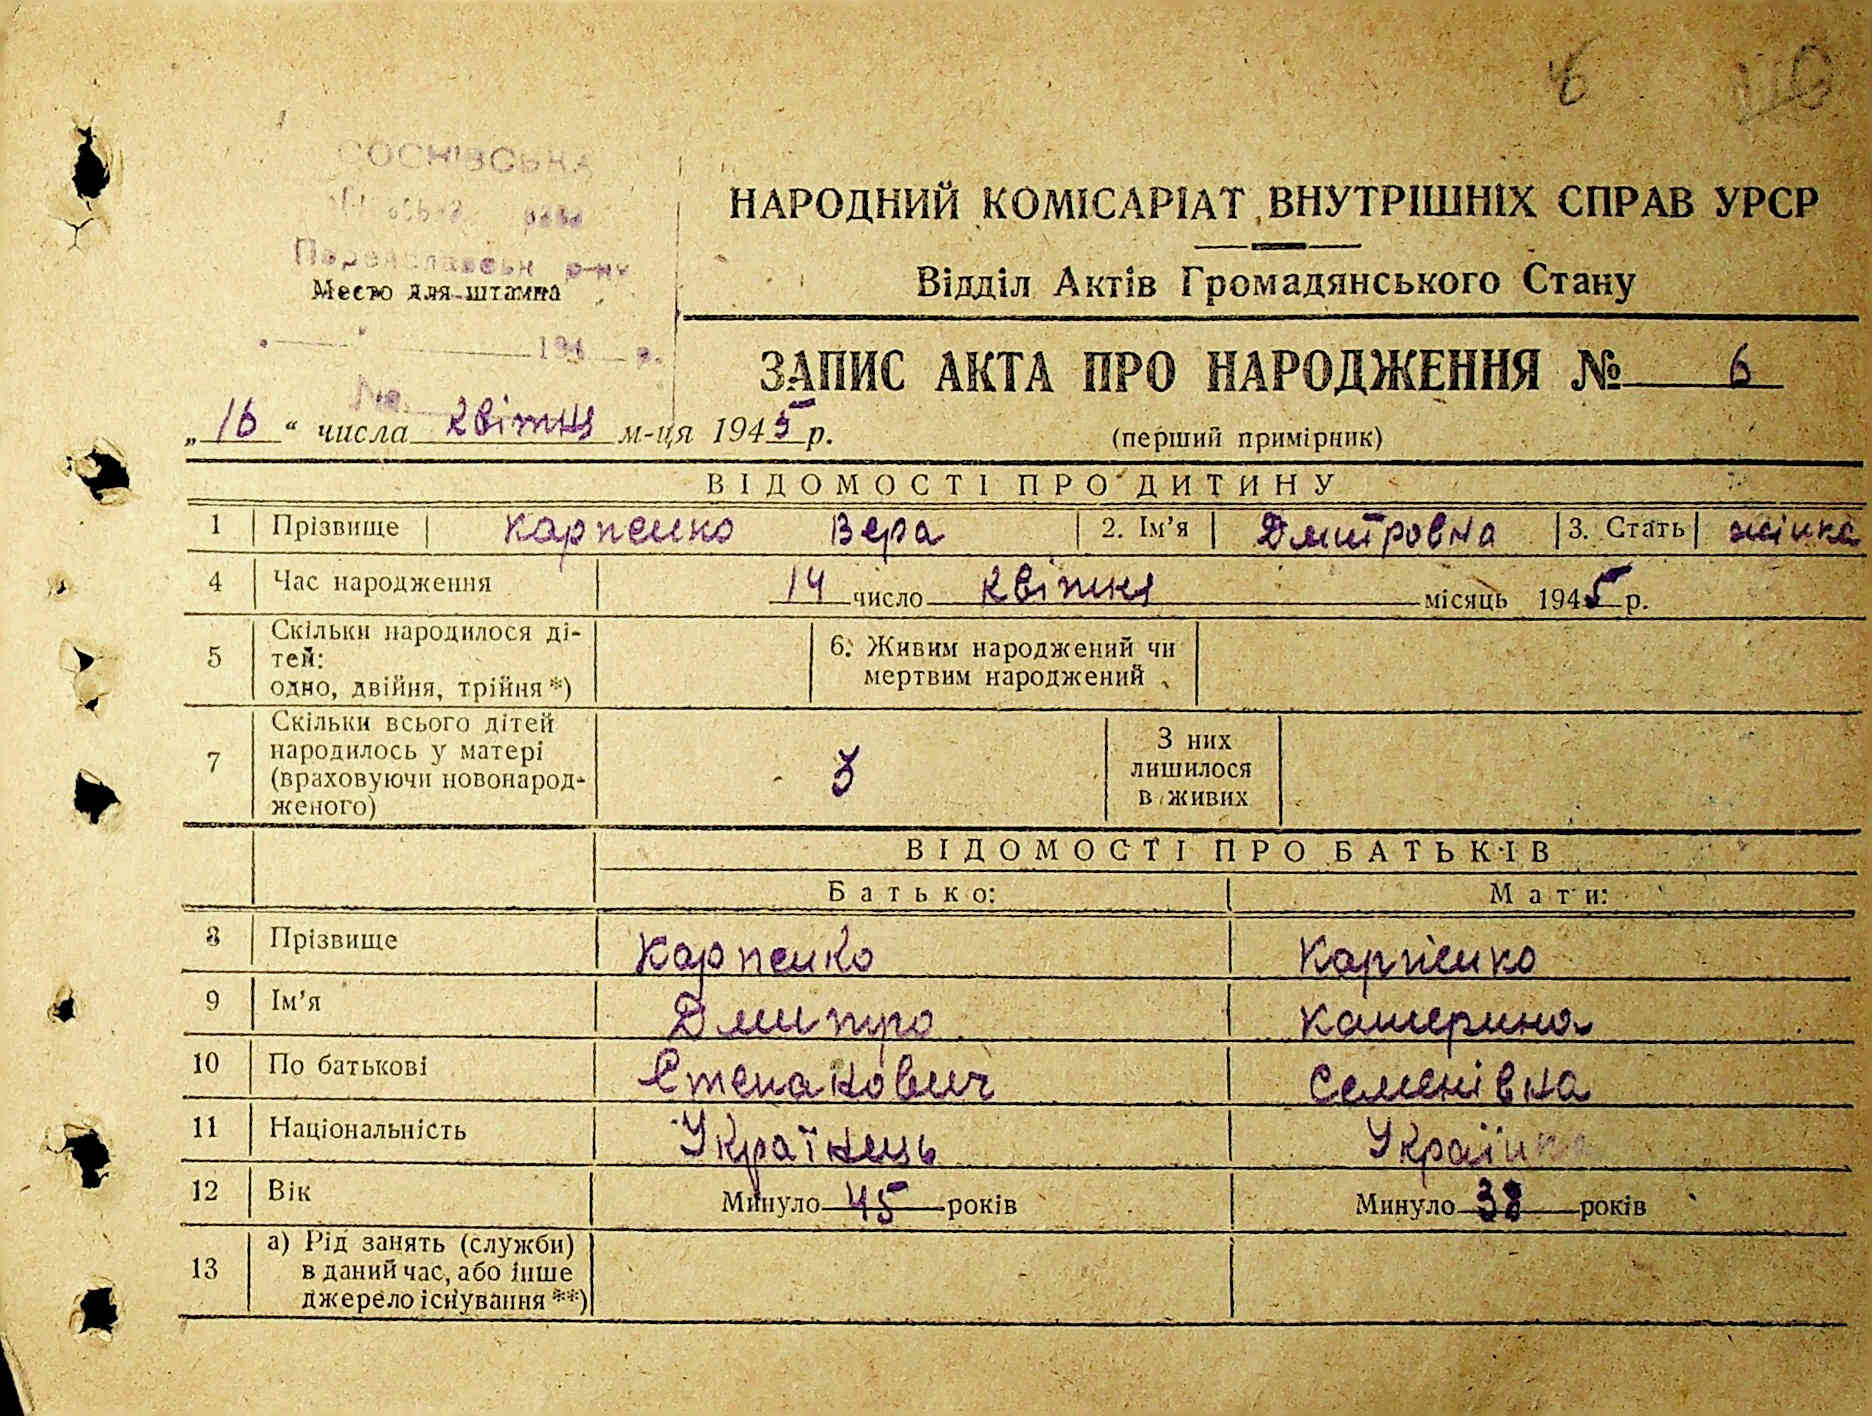 6
СОСНІВСЬКА
Переяславськ р-ну
Место для штампа
194 р.
№
НАРОДНИЙ КОМІСАРІАТ ВНУТРІШНІХ СПРАВ УРСР
Відділ Актів Громадянського Стану
ЗАПИС АКТА ПРО НАРОДЖЕННЯ № 6
„16“ числа квітня м-ця 1945 р.
(перший примірник)
ВІДОМОСТІ ПРО ДИТИНУ
1 Прізвище Карпенко Вера 2. Ім’я Дмитровна 3. Стать жінка
4 Час народження 14 число квітня місяць 1945 р.
5 Скільки народилося ді-
тей:
одно, двійня, трійня *)
6. Живим народжений чи
мертвим народжений
7 Скільки всього дітей
народилось у матері
(враховуючи новонарод-
женого)
3
З них
лишилося
в живих
ВІДОМОСТІ ПРО БАТЬКІВ
Батько: Мати:
8 Прізвище Карпенко Карпенко
9 Ім’я Дмитро Катерина
10 По батькові Степанович Семенівна
11 Національність Українець Українка
12 Вік Минуло 45 років Минуло 38 років
13 а) Рід занять (служби)
в даний час, або інше
джерело існування **)